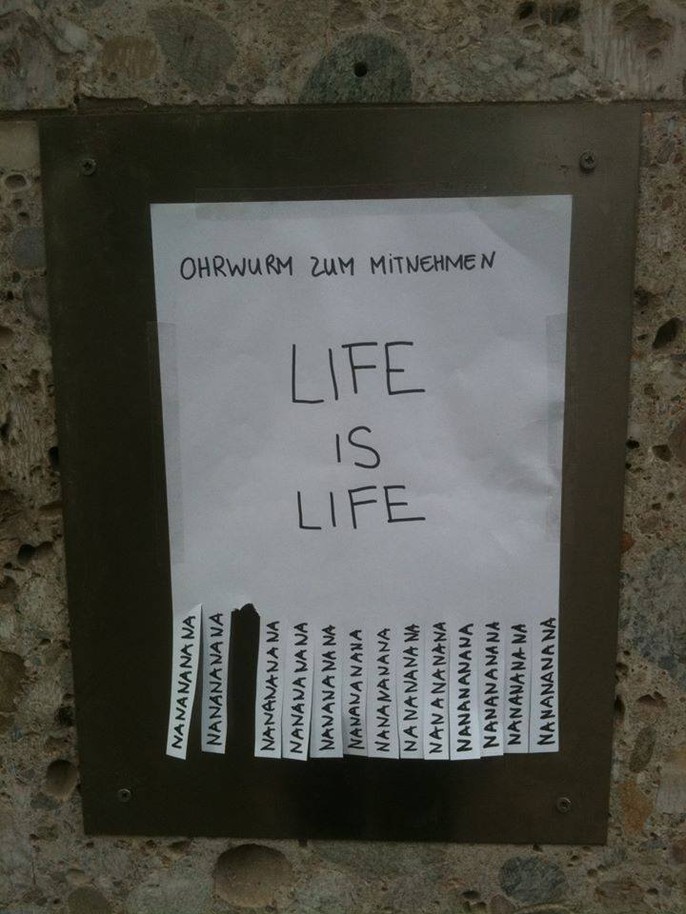 OHRWURM ZUM MITNEHMEN
LIFE
IS
LIFE
NANANANANA
NANANANANA
NANANANANA
NANANANANA
NANANANANA
NANANANANA
NANANANANA
NANANANANA
NANANANANA
NANANANANA
NANANANANA
NANANANANA
NANANANANA